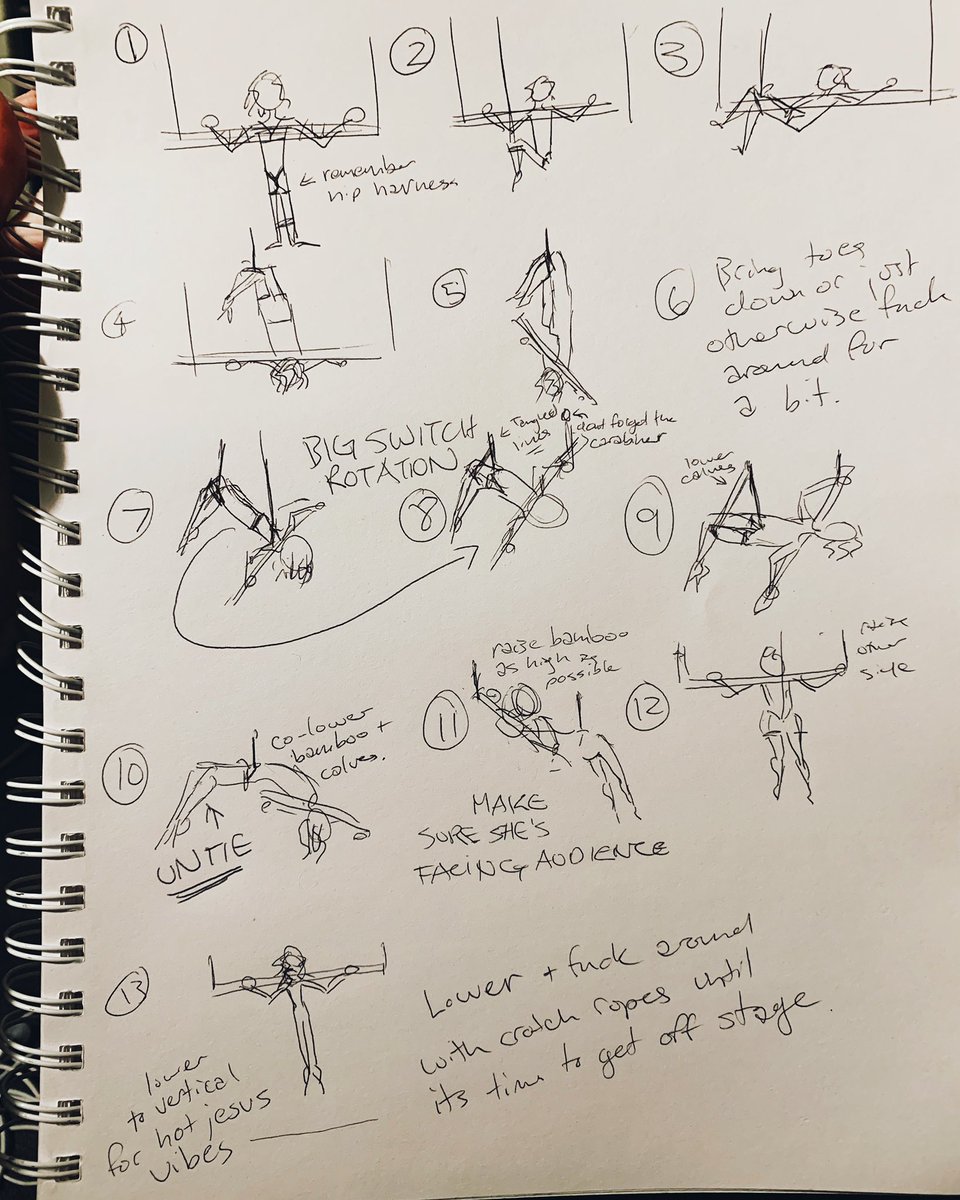 1
2
3
← remember
hip harness
4
5
6
Bring toes
down or just
otherwise fuck
around for
a bit.
BIG SWITCH
ROTATION
7
8
← Tangled
lines
dont forget the
carabiner
9
lower
calves
10
co-lower
bamboo +
calves.
UNTIE
11
raise bamboo
as high as
possible
MAKE
SURE SHE'S
FACING AUDIENCE
12
raise
other
side
13
lower
to vertical
for hot jesus
vibes
Lower + fuck around
with crotch ropes until
its time to get off stage.